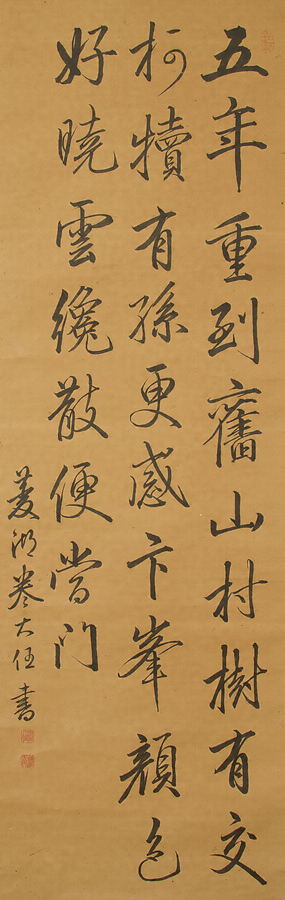 五年重到舊山村樹有交
柯犢有孫更感卞峯顏色
好曉雲纔散便當門
菱湖卷大任書